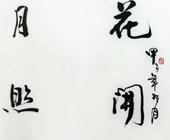 花開
月照
甲子年
月